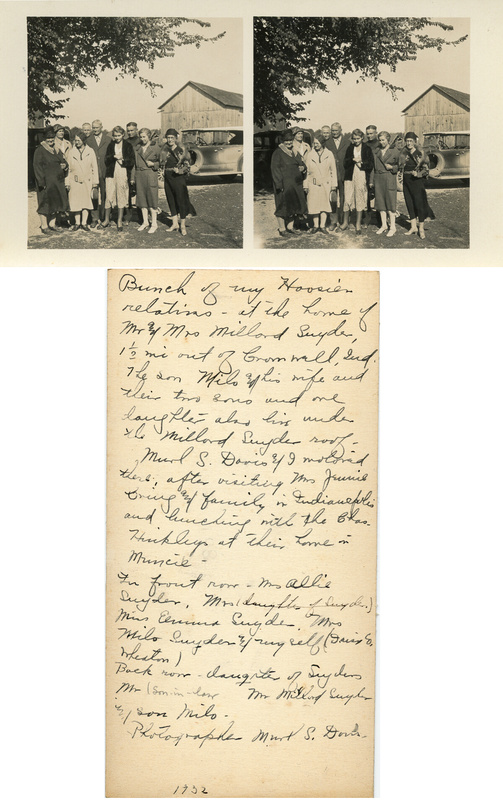 Bunch of my Hoosier
relations - at the home of
Mr & Mrs Millard Snyder,
1½ mi out of Cromwell, Ind.
The son Milo & his wife and
their two sons and one
daughter also live under
the Millard Snyder roof.
Murl S. Davis & I motored
there, after visiting Mrs Jennie
& family in Indianapolis
and lunching with the Chas.
Hinkleys at their home in
Muncie -
In front row - Mrs Allie
Snyder, Mrs (daughter of Snyder.)
Miss Emma Snyder, Mrs
Milo Snyder & myself (
Wheaton)
Back row - daughter of Snyders
Mr (son-in-law Mr Millard Snyder
& son Milo.
Photographer Murl S. Davis
1932